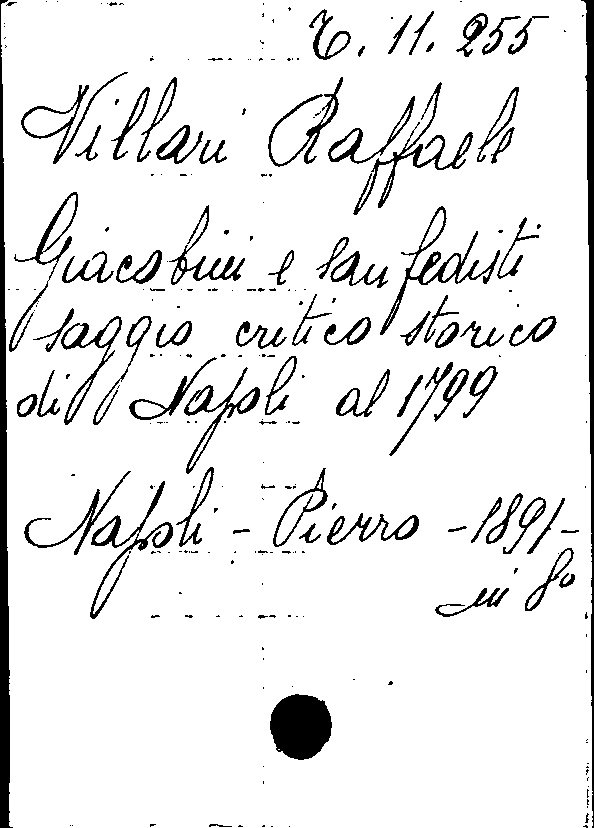 C. 11. 255
Villari Raffaele
Giacobini e sanfedisti
saggio critico storico
di Napoli al 1799
Napoli - Pierro - 1891 -
in 8°